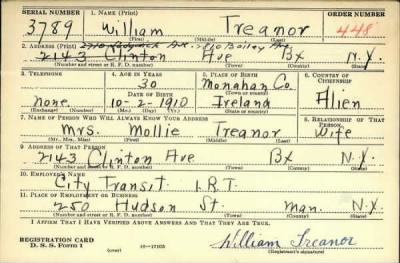 SERIAL NUMBER 1. NAME (Print) ORDER NUMBER
3789 William Treanor 448
(First) (Middle) (Last)
2. ADDRESS (Print)
2143 Clinton Ave Bx N.Y.
(Number and street or R. F. D. number) (Town) (County) (State)
3. TELEPHONE 4. AGE IN YEARS 5. PLACE OF BIRTH 6. COUNTRY OF CITIZENSHIP
30 Monahan Co.
DATE OF BIRTH (Town or county)
None 10-2-1910 Ireland Alien
(Exchange) (Number) (Mo.) (Day) (Yr.) (State or country)
7. NAME OF PERSON WHO WILL ALWAYS KNOW YOUR ADDRESS 8. RELATIONSHIP OF THAT PERSON
Mrs. Mollie Treanor Wife
(Mr., Mrs., Miss) (First) (Middle) (Last)
9. ADDRESS OF THAT PERSON
2143 Clinton Ave Bx N.Y.
(Number and street or R. F. D. number) (Town) (County) (State)
10. EMPLOYER'S NAME
City Transit I.R.T.
11. PLACE OF EMPLOYMENT OR BUSINESS
250 Hudson St. Man. N.Y.
(Number and street or R. F. D. number) (Town) (County) (State)
I AFFIRM THAT I HAVE VERIFIED ABOVE ANSWERS AND THAT THEY ARE TRUE.
REGISTRATION CARD
D. S. S. FORM 1 (over) William Treanor
(Registrant's signature)